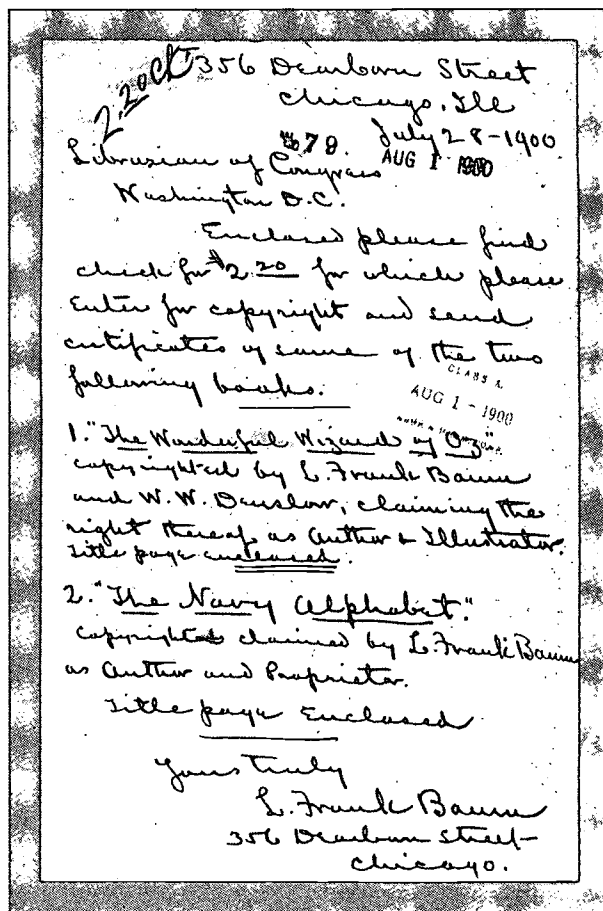 2.20 Ck
356 Dearborn Street
Chicago, Ill
July 28-1900
79.
AUG 1 1900
Librarian of Congress
Washington D.C.
Enclosed please find
check for $2.20 for which please
Enter for copyright and send
certificates of same of the two
following books.
CLASS A,
AUG 1 - 1900
1. "The Wonderful Wizard of Oz"
copyrighted by L. Frank Baum
and W. W. Denslow, claiming the
right thereof as Author & Illustrator.
Title page enclosed.
2. "The Navy Alphabet."
Copyright claimed by L. Frank Baum
as Author and Proprietor.
Title page Enclosed
Yours truly
L. Frank Baum
356 Dearborn Street
Chicago.